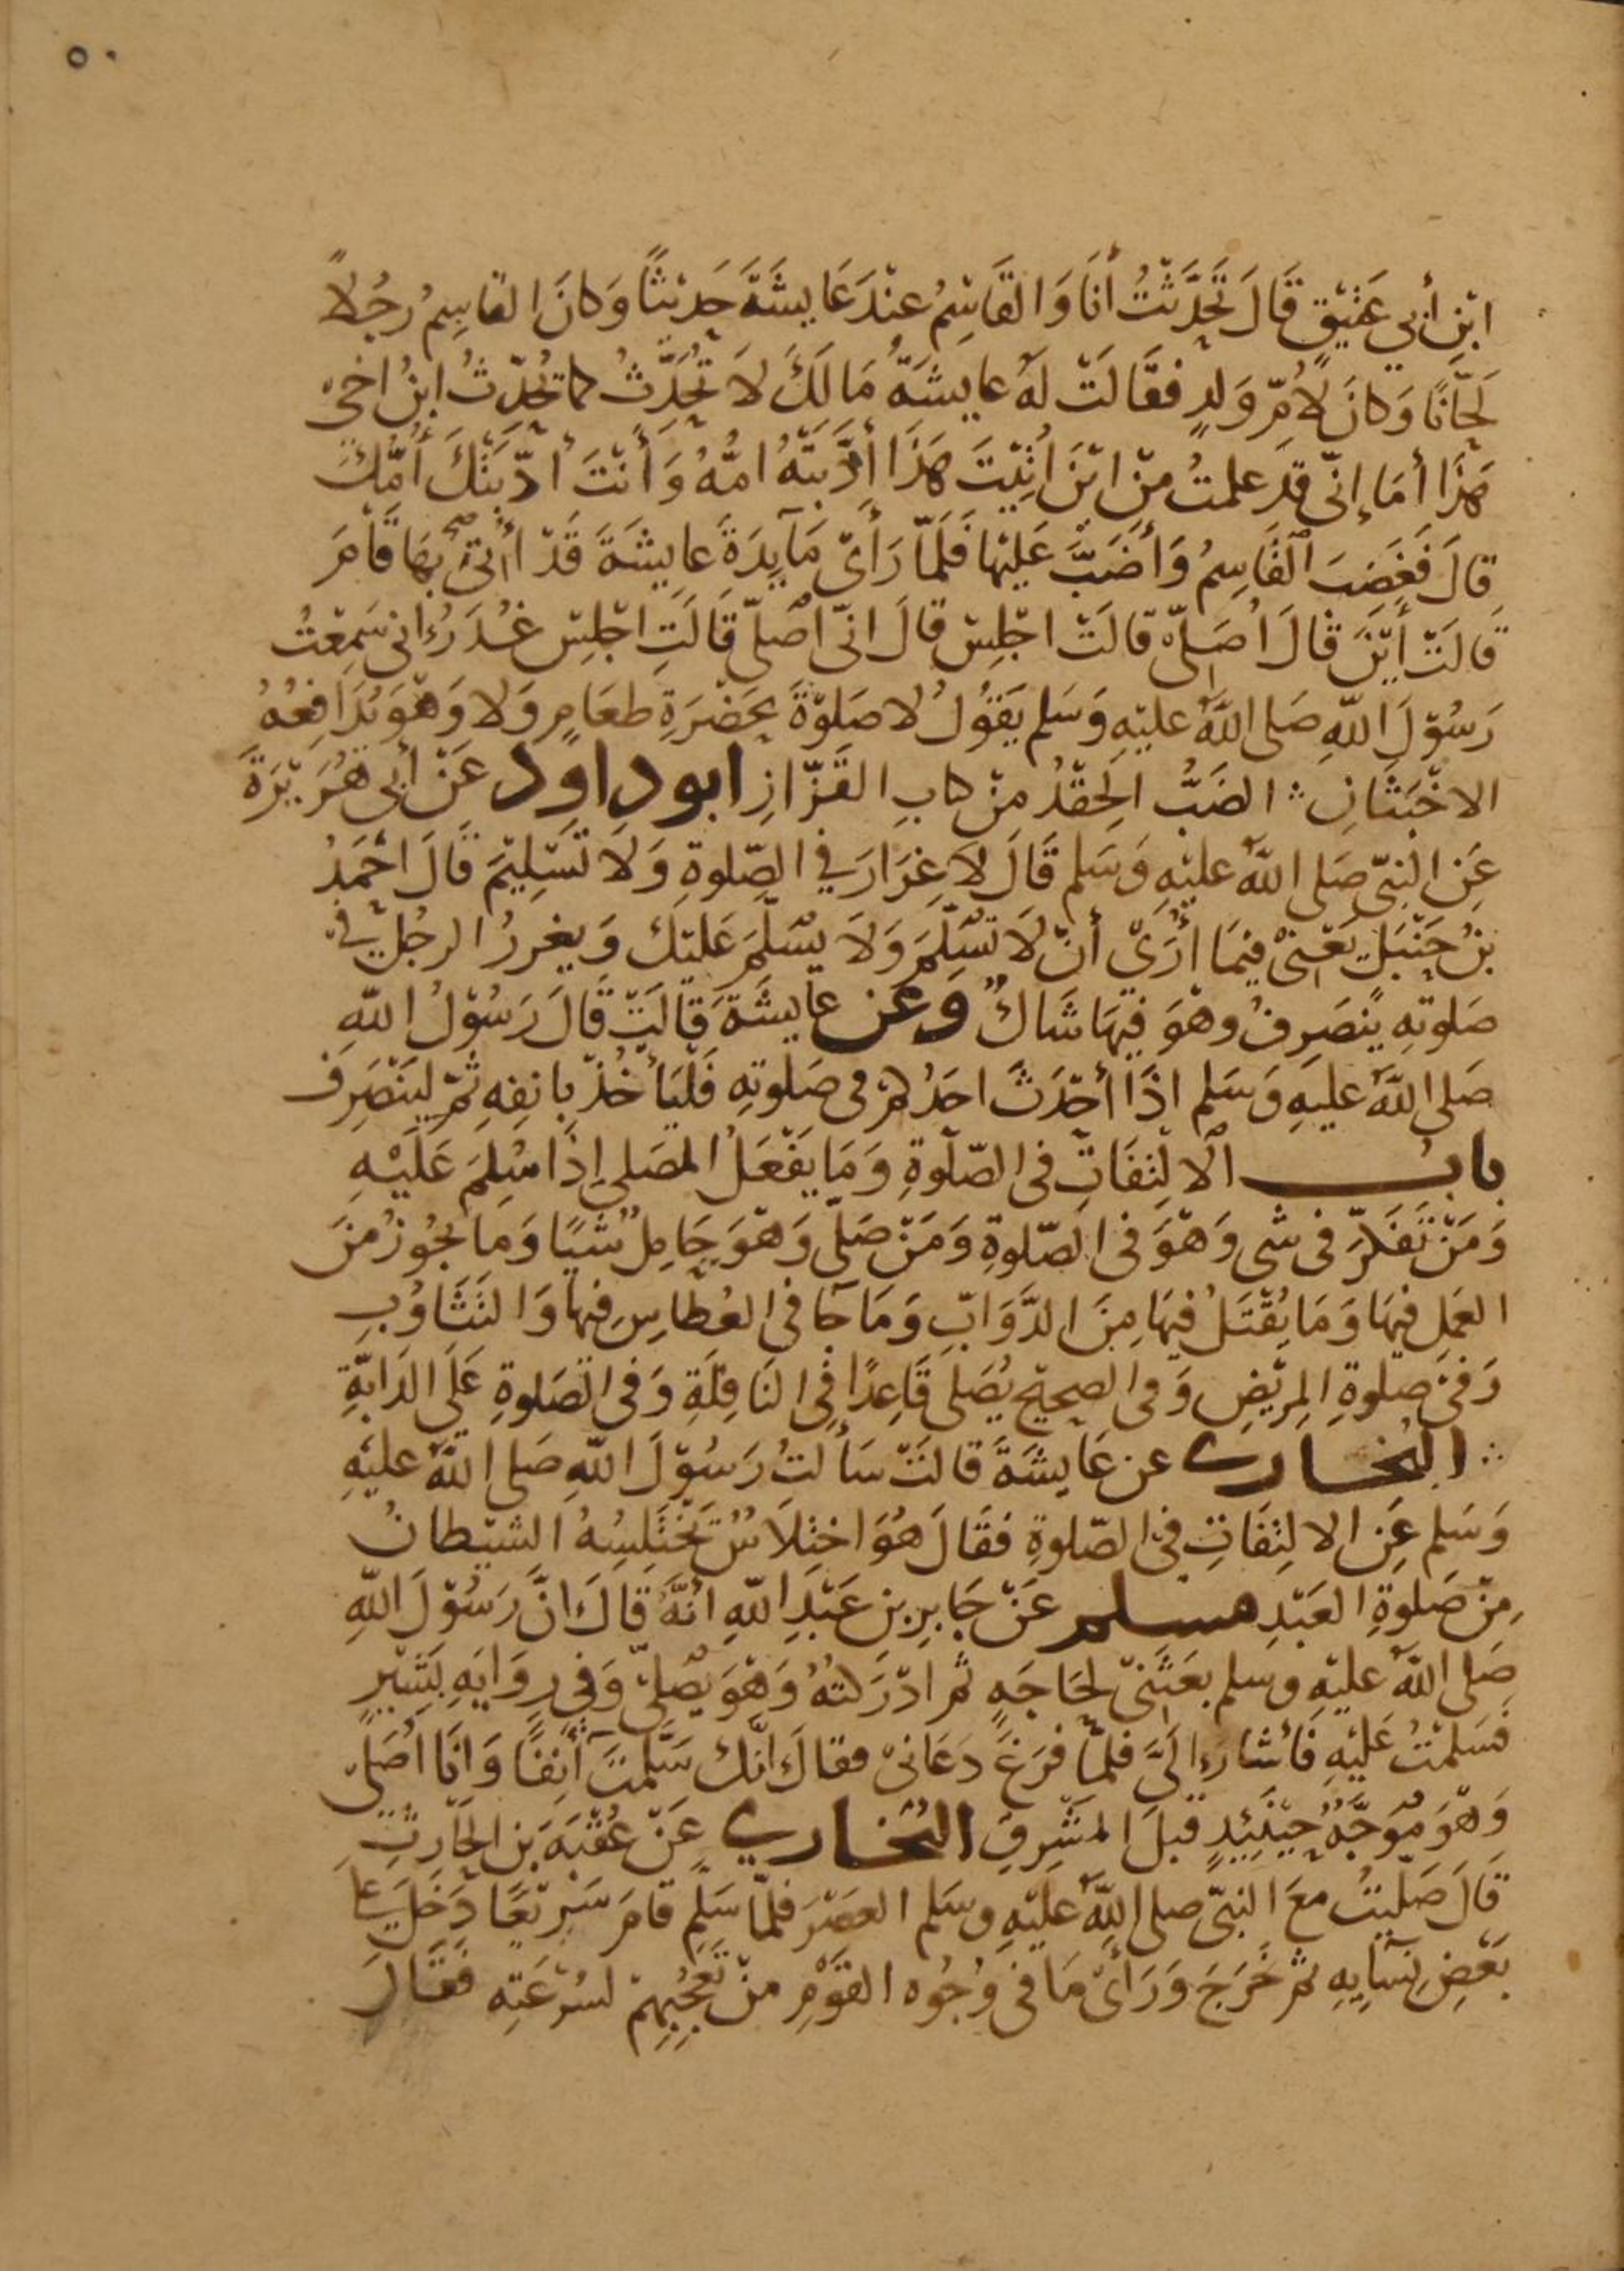 ٥٠
ابْنِ أَبِي عَتِيْقٍ قَالَ تَحَدَّثْتُ أَنَا وَالقَاسِمُ عِنْدَ عَايِشَةَ حَدِيْثًا وَكَانَ القَاسِمُ رَجُلاً
لَحَّانًا وَكَانَ لأُمِّ وَلَدٍ فَقَالَتْ لَهُ عَايِشَةُ مَالَكَ لاَ تُحَدِّثُ كما تُحَدِّثُ ابنُ اخى
هَذَا أمَا إِنّى قد علمتُ مِنْ ايْنَ اُتِيْتَ هَذَا أَدَّبَتْهُ امُّهُ وَأَنْتَ أَدَّبَتْكَ أُمُّكَ
قَالَ فَغَضِبَ القَاسِمُ وَأَضَبَّ عَلَيْهَا فَلَمَّا رَأَى مَايِدَةَ عَايِشَةَ قَدْ أُتِيَ بِهَا قَامَ
قَالَتْ أَيْنَ قَالَ اُصَلِّى قَالَتْ اجْلِسْ قَالَ انّى اُصَلِّى قَالَتِ اجْلِسْ غُدَرُ انى سَمِعْتُ
رَسُوْلَ اللّهِ صَلى اللَّهُ عليْهِ وَسَلم يَقُوْلُ لا صَلوٰةَ بحَضْرَةِ طعَامٍ وَلا وَهْوَ يُدَافِعُهُ
الاخْبَثَانِ ؞ الضَبُّ الحِقْدُ مِنْ كتابِ القَزّازِ ابو داود عَنْ أَبِى هُرَيْرَةَ
عَنِ النبّىِ صَلى اللَّهُ عليْهِ وَسَلم قَالَ لاَ غِرَارَ فِي الصّلوةِ وَلاَ تَسْلِيْمَ قَالَ احْمَدُ
بنُ حَنْبَلٍ يَعْنِىْ فِيمَا أُرَى أَنْ لاَ تُسَلِّمَ وَلاَ يُسَلَّمَ عَليْكَ وَيغررُ الرجُل في
صَلوتِهِ يَنْصَرِفُ وهْوَ فِيهَا شَاكٌّ وَعَن عَايِشَةَ قَالَتْ قَالَ رَسُوْلُ اللّهِ
صَلى اللَّهُ عليهِ وَسَلم اذَا أحْدَثَ احَدُكُمْ فى صَلوتِهِ فَلْيَأخُذْ بِانفِهِ ثمّ ليَنْصَرِفْ
بابُ الالْتِفَاتِ فى الصّلوةِ وَمَا يَفْعَلُ المصَلى إِذَا سُلِمَ عَلَيْهِ
وَمَنْ تَفَكّرَ فى شى وَهْوَ فى الصّلوةِ وَمَنْ صَلّى وَهْوَ حَامِلٌ شَيًا وَمَا يجُوزُ مِنَ
العَمَلِ فِيهَا وَمَا يُقْتَلُ فِيهَا مِنَ الدَّوَابِّ وَمَا جَآ فى العُطَاسِ فيها وَالتَثَاوُبِ
وَفى صَلوةِ المرِيْضِ وَفى الصحِيْحِ يُصَلى قَاعِدًا فى النَافِلَةِ وَفى الصَلوةِ عَلَى الدَابّةِ
؞ البُخارى عن عَايِشَةَ قَالَتْ سَأَلْتُ رَسُوْلَ اللّهِ صَلى اللَّهُ عليْهِ
وَسَلم عَنِ الالتِفَاتِ فِى الصّلوةِ فقَالَ هُوَ اخْتِلاَسٌ تَخْتَلِسُهُ الشيْطانُ
مِنْ صَلوةِ العَبْدِ مسلم عَنْ جَابِرِ بن عَبْدِ اللّهِ انَّهُ قَالَ انَّ رَسُوْلَ اللّهِ
صَلى اللَّهُ عليْهِ وسَلم بعَثَنىْ لحَاجَةٍ ثم ادْرَكتُهُ وَهْوَ يُصَلىّ وَفى رِوَايَةٍ يَسِيْرُ
فسَلمْتُ عَليْهِ فَأشَارَ إِلَىَّ فلمّا فرَغَ دَعَانىْ فقالَ انّكَ سَلَّمْتَ آنِفًا وَانَا اُصَلىّ
وَهْوَ مُوَجَّهٌ حِيْنَئِذٍ قبلَ المَشْرِقِ البُخارى عَنْ عُقْبَةَ بْنِ الحَارِثِ
قَالَ صَلّيْتُ معَ النبّىِ صلى اللَّهُ عليْهِ وسَلم العصْرَ فلمّا سَلمَ قَامَ سَرِيْعًا دَخَلَ على
بَعْضِ نِسَآيِهِ ثم خَرَجَ وَرَأَى مَا فى وُجُوه القَوْمِ منْ تَعَجُّبِهِمْ لسُرْعَتِهِ فَقَالَ